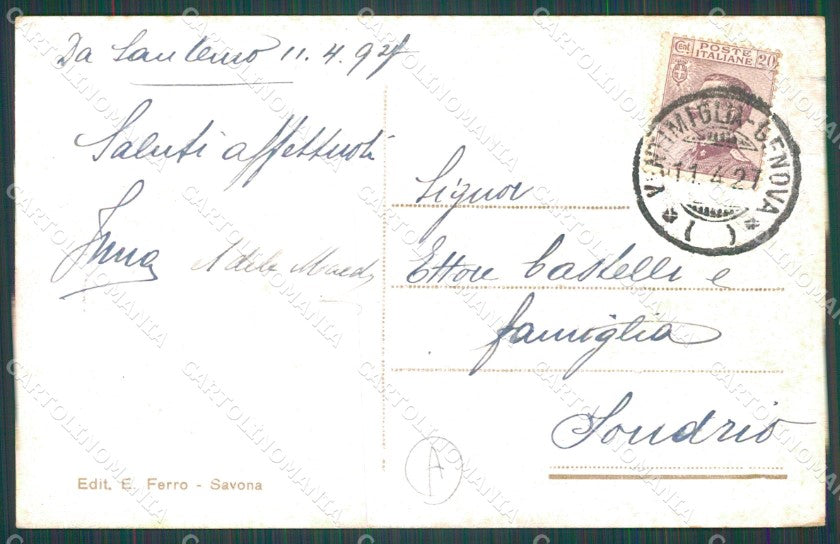 Da Sanremo 11.4.927
Saluti affettuosi
Adele
Signor
Ettore Castelli e
famiglia
Sondrio
A
Edit. E. Ferro - Savona
Cent. POSTE ITALIANE 20
VENTIMIGLIA-GENOVA
11.4.27
( )
CARTOLINOMANIA